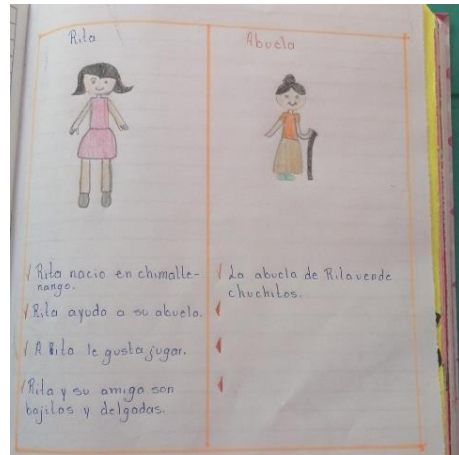 Rita
Abuela
Rita nacio en chimalte-
nango.
Rita ayuda a su abuela.
A Rita le gusta jugar.
Rita y su amiga son
bajitas y delgadas.
La abuela de Rita vende
chuchitos.